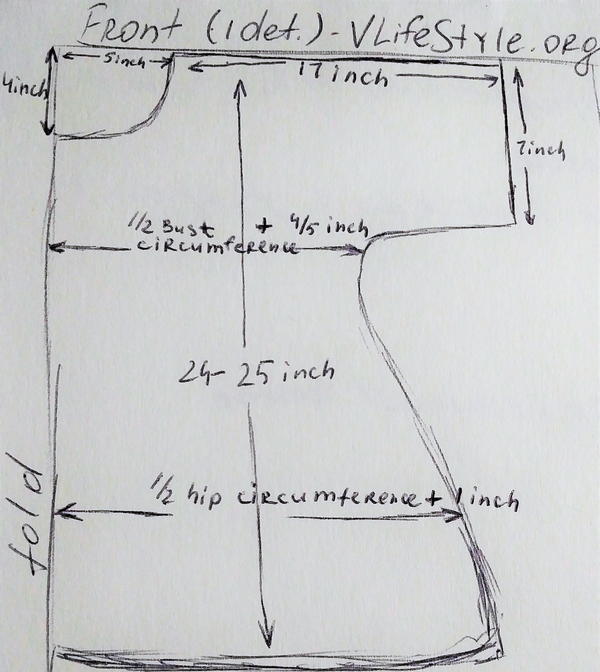 Front (1det.)-VLifeStyle.org
5inch
17inch
4inch
7inch
1/2 Bust + 4/5 inch
circumference
24-25 inch
1/2 hip circumference + 1inch
fold